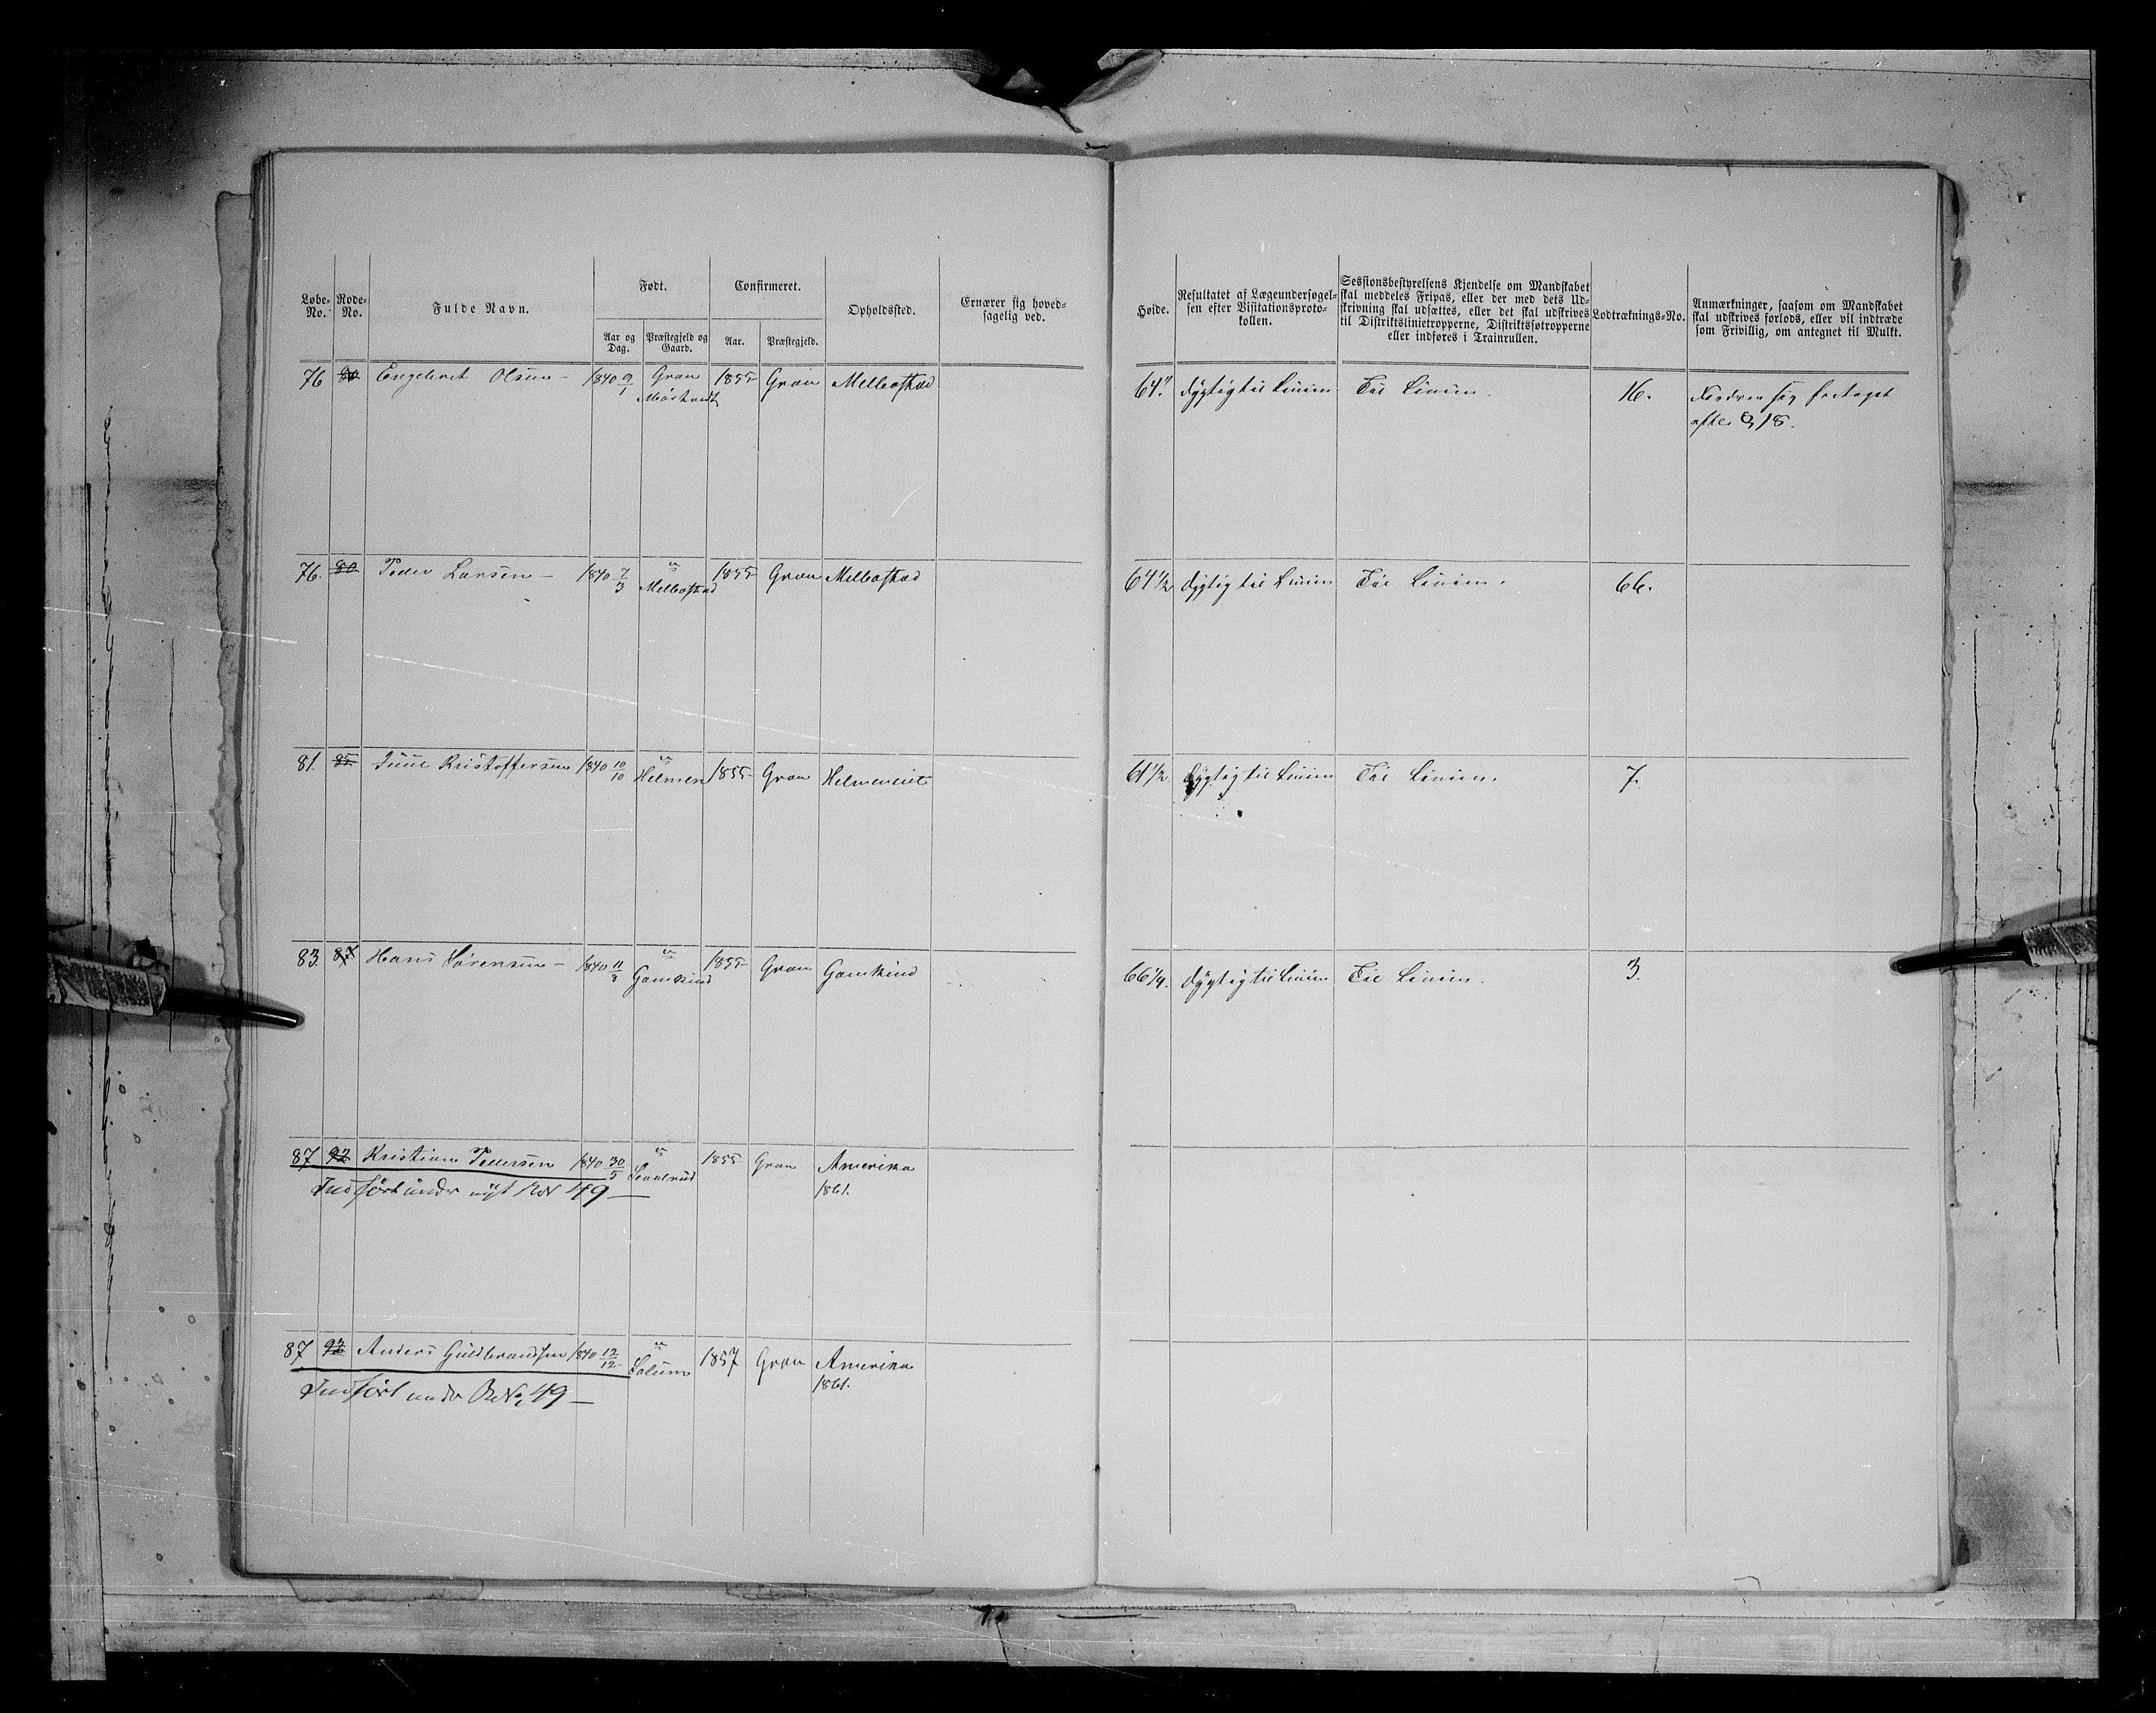 Løbe-No. Rode-No. Fulde Navn. Født. Aar og Dag. Præstegjeld og Gaard. Confirmeret. Aar. Præstegjeld. Opholdssted. Ernærer sig hovedsagelig ved.
Høide. Resultatet af Lægeundersøgelsen efter Visitationsprotokollen. Sessionsbestyrelsens Kjendelse om Mandskabet skal meddeles Fripas, eller der med dets Udskrivning skal udsættes, eller det skal udskrives til Distriktslinietropperne, Distriktsføtropperne eller indføres i Trainrullen. Lodtræknings-No. Anmærkninger, saasom om Mandskabet skal udskrives forlods, eller vil indtræde som Frivillig, om antegnet til Mulkt.
76 Engebret Olsen – 1840 9/1 Gran 1855 Gran Melbostad 64". Dygtig til Linien Til Linien. 16.
efter § 18.
76. 80 Peder Larsen – 1840 7/3 " Melbostad 1855 Gran Melbostad 64 1/2 Dygtig til Linien Til Linien. 66.
81. 85 Juul Kristoffersen 1840 10/10 " Helmen 1855 Gran Helmeneiet 61 1/2. Dygtig til Linien Til Linien. 7.
83. 87 Hans Sørensen – 1840 11/3 " Gamkind 1855 Gran Gamkind 66 1/4. Dygtig til Linien Til Linien. 3.
87 92 Kristian Pedersen 1840 30/5 " 1855 Gran Amerika
Indført under nyt RN 49 – 1861.
87 92 Anders Guldbrandsen 1840 12/12 " 1857 Gran Amerika
Indført under RNo 49 – 1861.